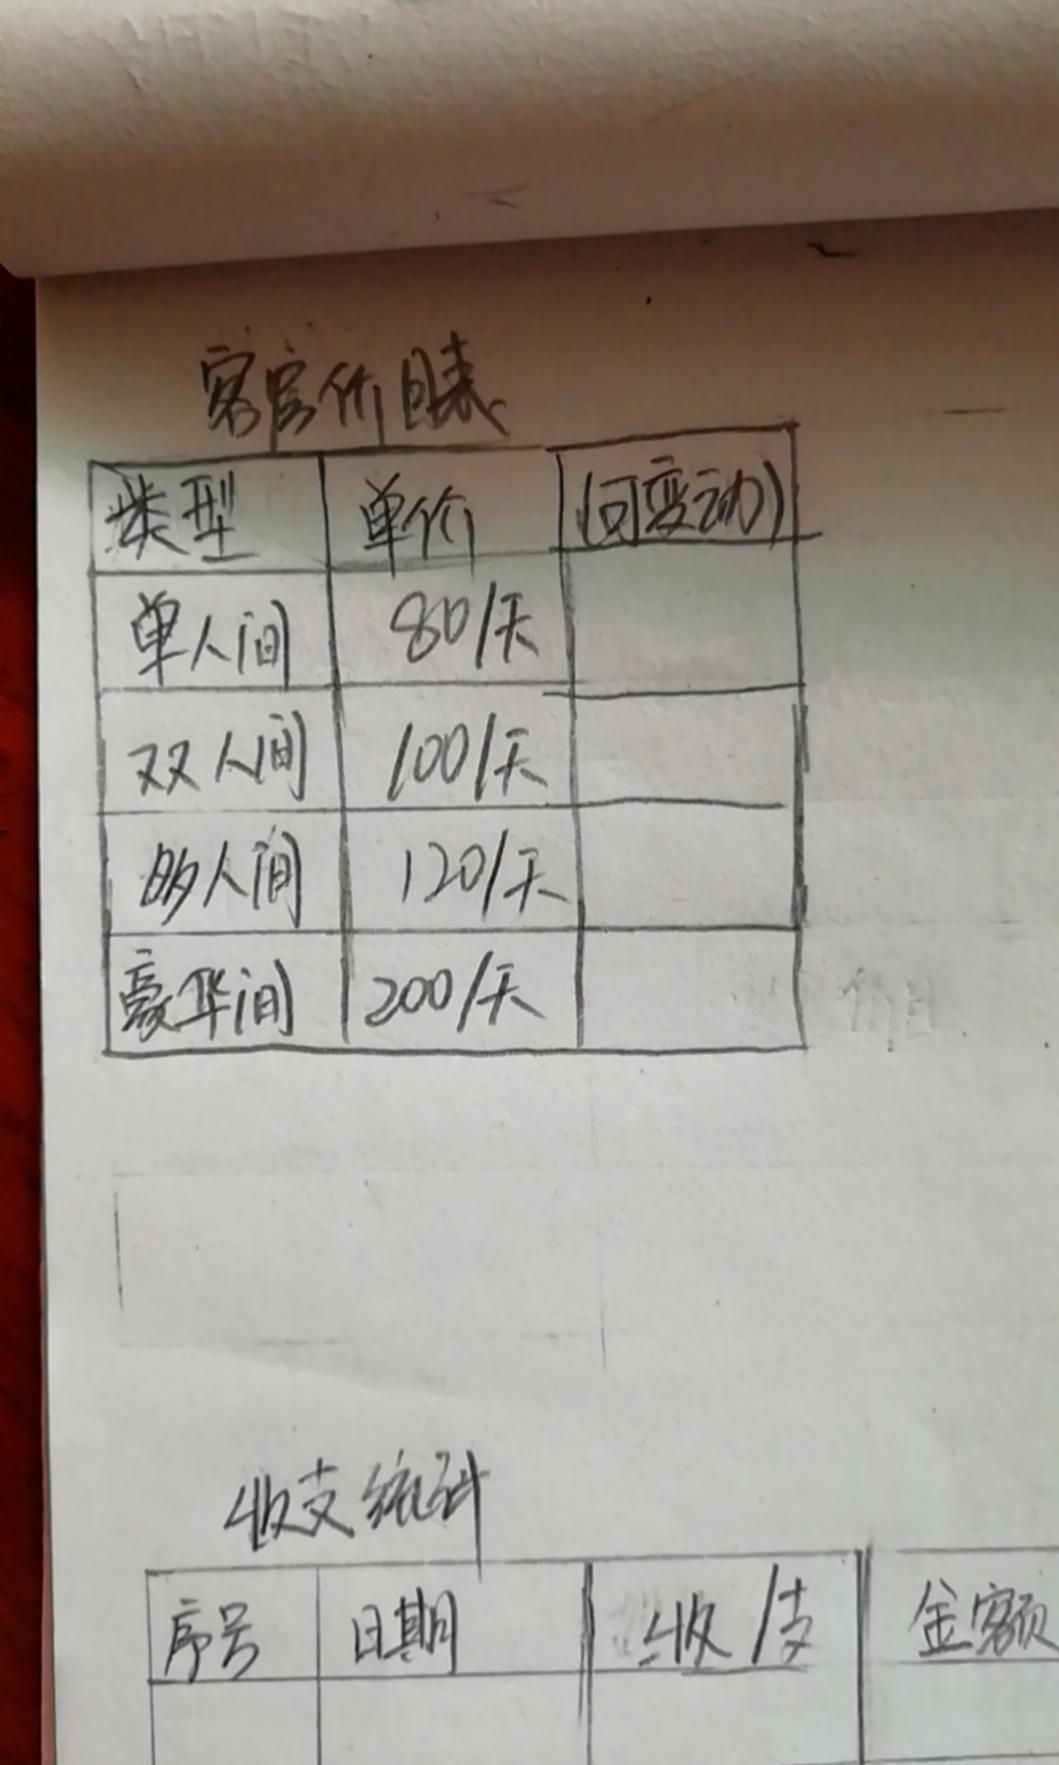 客官价目表
类型 单价 (可变动)
单人间 80/天
双人间 100/天
多人间 120/天
豪华间 200/天
价目
收支统计
序号 日期 收/支 金额